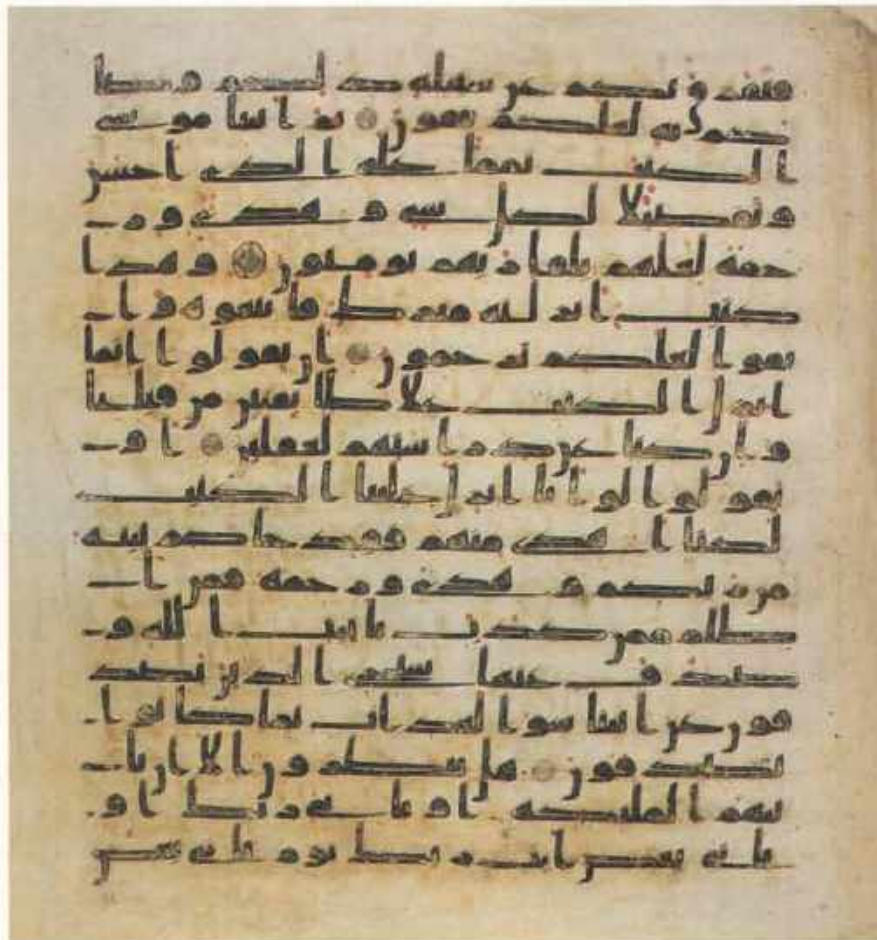 فتفرق بكم عن سبيله ذلكم وصيا
كم به لعلكم تتقون ثم اتينا موسى
الكتب تماما على الذى احسن
وتفصيلا لكل شى وهدى ور
حمة لعلهم بلقا ربهم يومنون وهذا
كتب انزلنه مبرك فاتبعوه وا
تقوا لعلكم ترحمون ان تقولوا انما
انزل الكتب على طايفتين من قبلنا
وان كنا عن دراستهم لغفلين او
تقولوا لو انا انزل علينا الكتب
لكنا اهدى منهم فقد جاكم بينة
من ربكم وهدى ورحمة فمن ا
ظلم ممن كذب بايت الله و
صدف عنها سنجزى الذين يصد
فون عن ايتنا سو العذاب بما كانوا
يصدفون هل ينظرون الا ان تا
تيهم الملئكة او ياتى ربك او
ياتى بعض ايت ربك يوم ياتى بعض